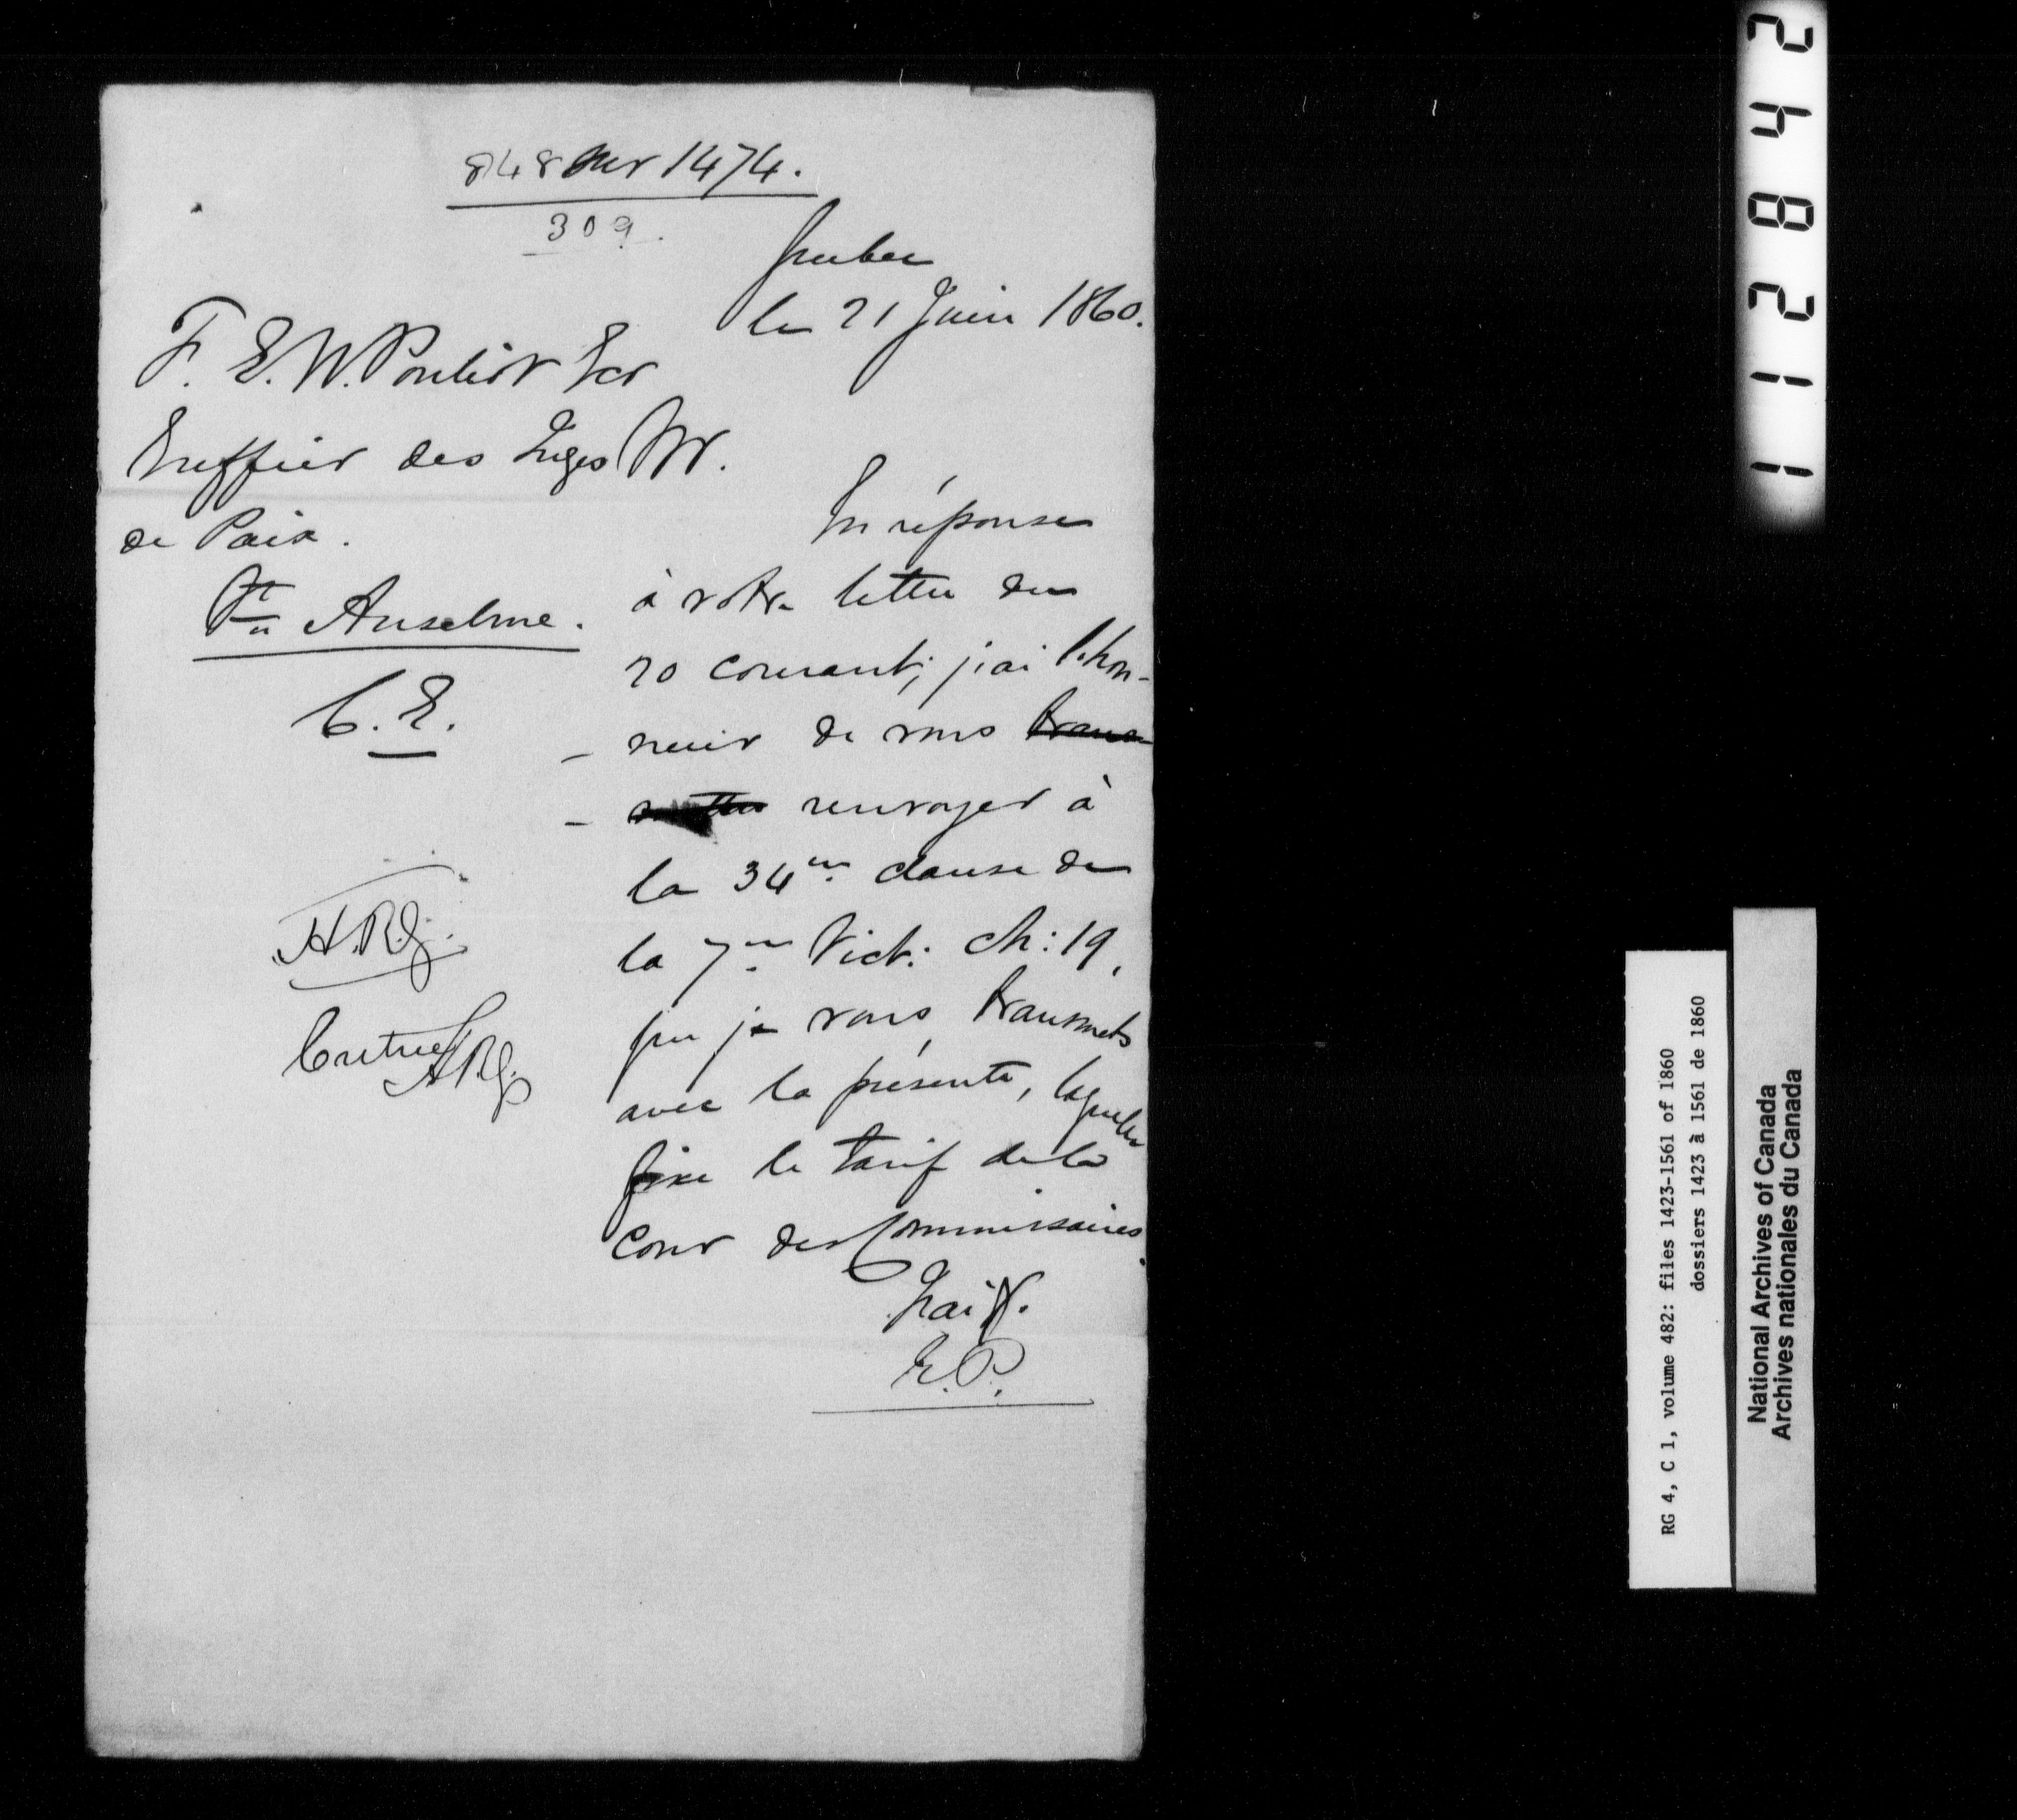 848 sur 1474.
309.
Quebec
le 21 Juin 1860.
F. E. W. Pouliot Ecr
Greffier des Juges
de Paix.
Ste Anselme.
C. E.
Mr.
En réponse
à votre lettre du
20 courant; j'ai l'hon-
neur de vous trans-
mettre renvoyer à
la 34me clause de
la 7me Vict: ch: 19,
que je vous transmets
avec la présente, laquelle
fixe le tarif de la
Cour des Commissaires.
J'ai &.
E.P.
H.R.J.
Entrée
H.R.J.
112842
RG 4, C 1, volume 482: files 1423-1561 of 1860
dossiers 1423 à 1561 de 1860
National Archives of Canada
Archives nationales du Canada